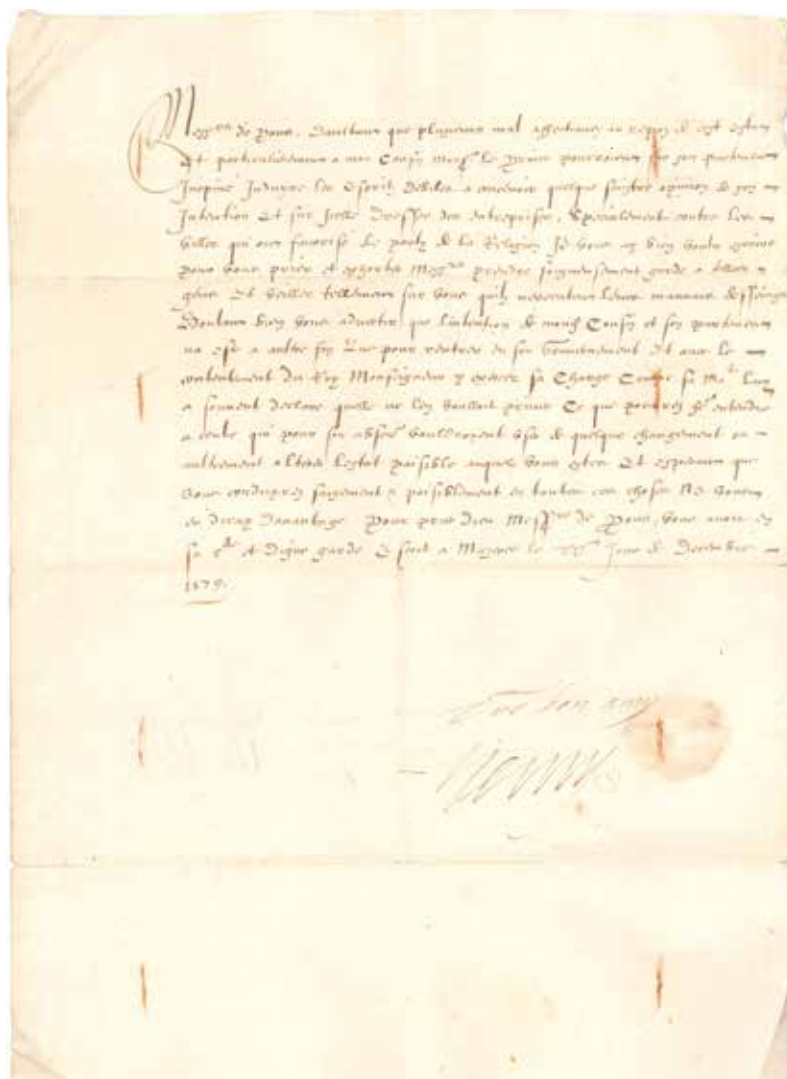 Mess^rs de Pons, Daultant que plusieurs mal affectionez au reppoz de cest estat
Et particulierement a mon Cousin Mons^r le Prince pourroient sur son partement
Inopiné Induyre les Esprits debiles a concevoir quelque sinistre opinion de son
Intention Et sur Icelle dresser des entreprises, Specialement contre les
Villes qui ont favorisé le party de la Religion Je vous ay bien voulu escrire
pour vous prier et exhorter Mess^rs prendre soigneusement garde a telles
gens Et veiller tellement sur vous quilz neventent leurs mauvais desseings
Voulant bien vous advertir que lintention de mond^t Cousin et son partement
na esté a autre fin Que pour rentrer en son Gouvernement Et avec le
contentement du Roy Monseigneur y exercer sa Charge Comme sa Ma^té luy
a souvent declaré quelle ne len vouloit priver Ce que pourrez f^e entendre
a ceulx qui pour son absence vouldroyent user de quelque changement ou
aultrement alterer lestat paisible auquel vous estes Et esperant que
vous conduyrez sagement & paisiblement en toutes ces choses Ne vous
en diray davantage Pour prier Dieu Mess^rs de Pons, vous avoir en
sa s^te et digne garde Escrit a Mazeres le jour de Decembre
1579.
V^re bon amy
Henry